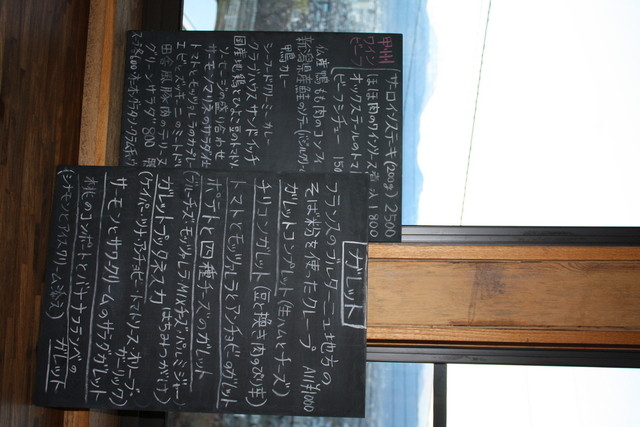 甲州
ワイン
ビーフ
サーロインステーキ(200g) 2500
ほほ肉のワインソース煮込 1800
オックステールのトマト
ビーフシチュー 150
仏産鴨もも肉のコンフィ
新潟県産鮭のソテー
鴨カレー
シーフードクリーミーカレー
クラブハウスサンドイッチ
国産地鶏とひよこ豆のトマト
ソーセージの盛り合わせ
サーモンマリネのサラダ仕
トマトとモッツァレラのカプレーゼ
エビとズッキーニの
田舎風豚肉のテリーヌ
グリーンサラダ 800
ガレット
フランスのブルターニュ地方の
そば粉を使ったクレープ All ¥1000
ガレットコンプレット(生ハムとチーズ)
チリコンガレット(豆と挽き肉のピリ辛)
トマトとモッツァレラとアンチョビのガレット
ポテトと四種チーズのガレット
(ブルーチーズ モッツァレラ MIXチーズ パルミジャーノ
はちみつがけ)
ガレットプッタネスカ
(ケイパー・ツナ・アンチョビ・トマトソース・オリーブ
ガーリック)
サーモンとサワークリームのサラダガレット
桃のコンポートとバナナフランベの
ガレット
(シナモンとアイスクリーム添え)